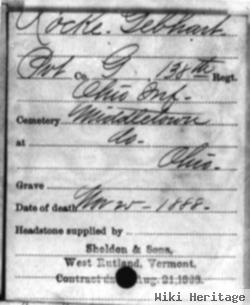 Rocke. Gebhart.
Pvt Co. G. 138th Regt.
Ohio Inf.
Cemetery Middletown
at do.
Ohio.
Grave
Date of death Nov 25 - 1888.
Headstone supplied by
Sheldon & Sons,
West Rutland, Vermont,
Contract Aug. 21,
Wiki Heritage